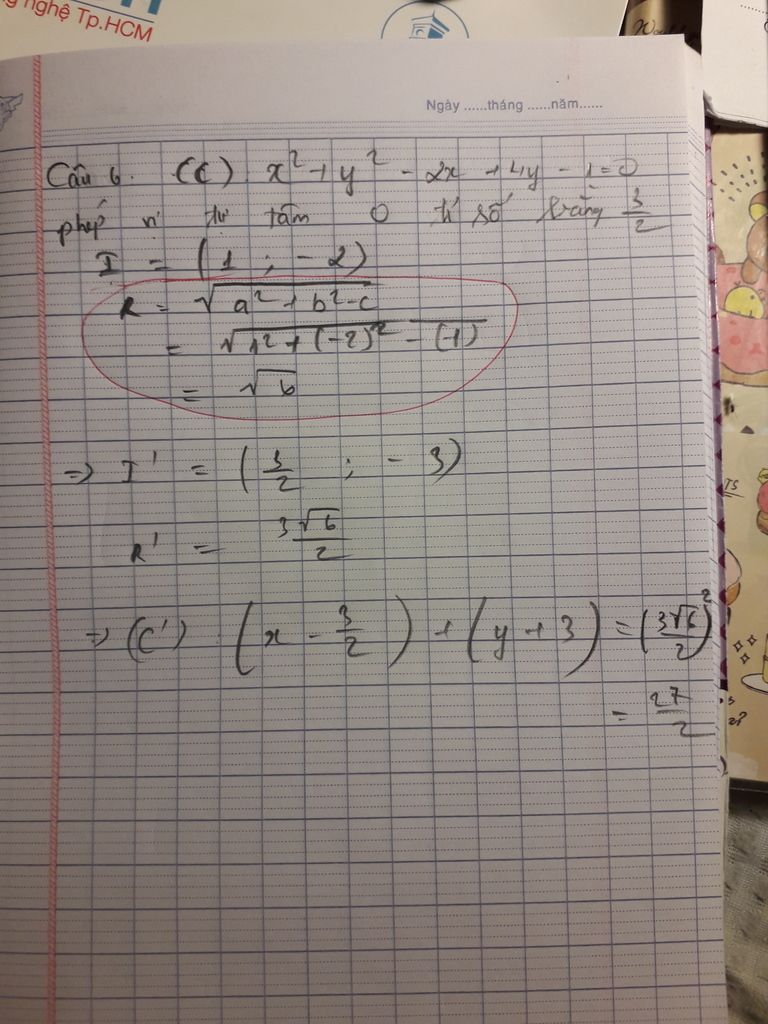 nghệ Tp.HCM
Ngày ......tháng ......năm......
Câu 6. (C) x² + y² - 2x + 4y - 1 = 0
phép vị tự tâm O tỉ số bằng 3/2
I = (1 ; - 2)
R = √(a² + b² - c)
= √(1² + (-2)² - (-1))
= √6
=> I' = (3/2 ; - 3)
R' = 3√6/2
=> (C') : (x - 3/2) + (y + 3) = (3√6/2)²
= 27/2